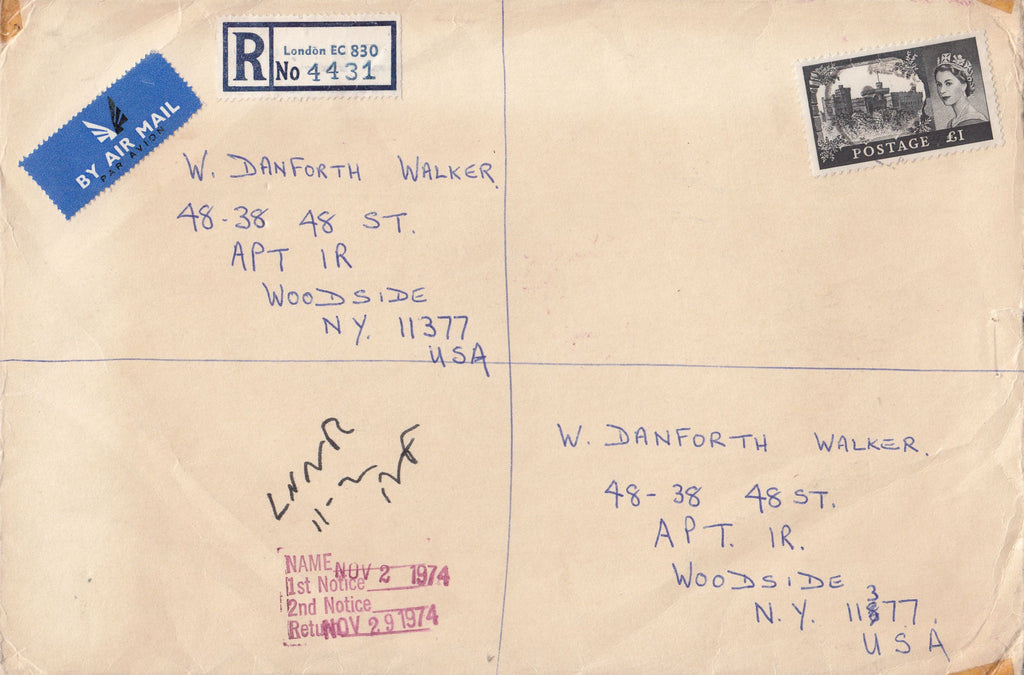 R
London EC 830
No 4431
BY AIR MAIL
PAR AVION
POSTAGE £1
W. DANFORTH WALKER
48-38 48 ST.
APT 1R
WOODSIDE
N.Y. 11377
USA
W. DANFORTH WALKER.
48-38 48 ST.
APT. 1R.
WOODSIDE
N.Y. 11377.
USA
11-2
NAME
1st Notice NOV 2 1974
2nd Notice
NOV 29 1974